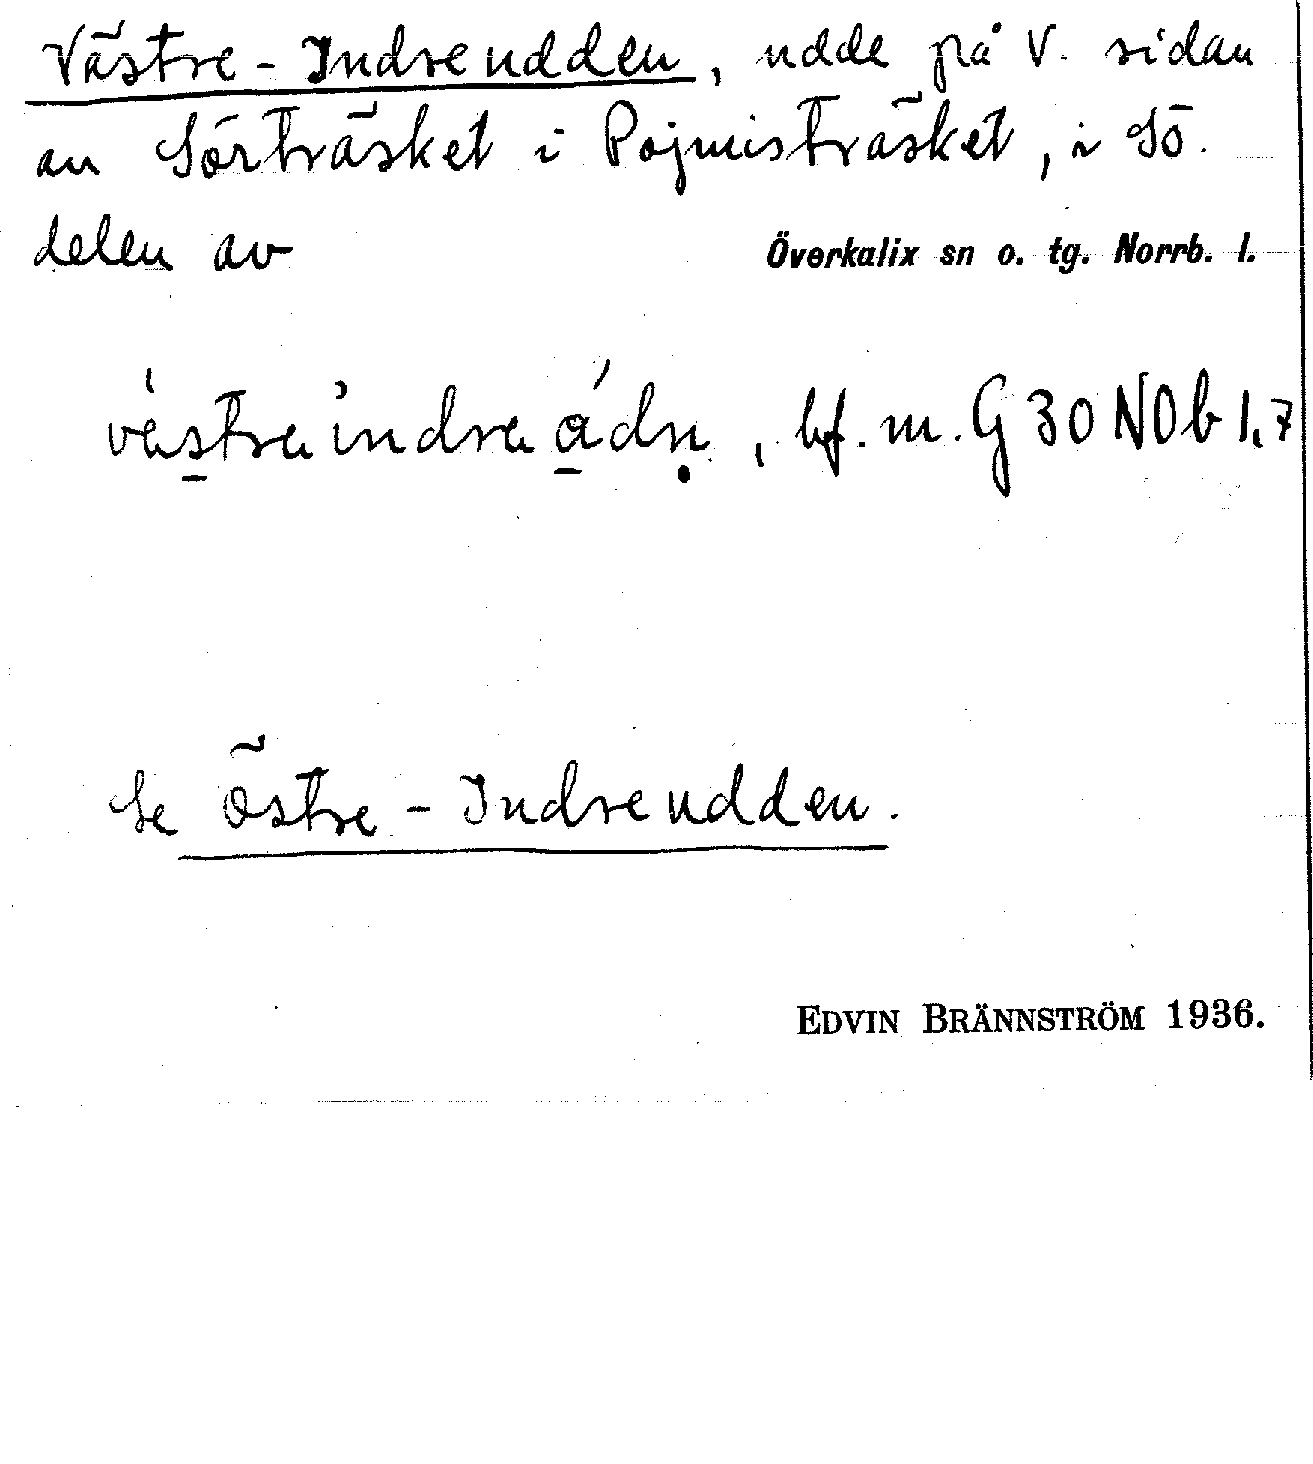 Västre-Indreudden, udde på V. sidan
av Sörträsket i Pojmisträsket, i SÖ.
delen av Överkalix sn o. tg. Norrb. l.
bf. m. G 30 NOb 1,7
Se Östre-Indreudden.
EDVIN BRÄNNSTRÖM 1936.